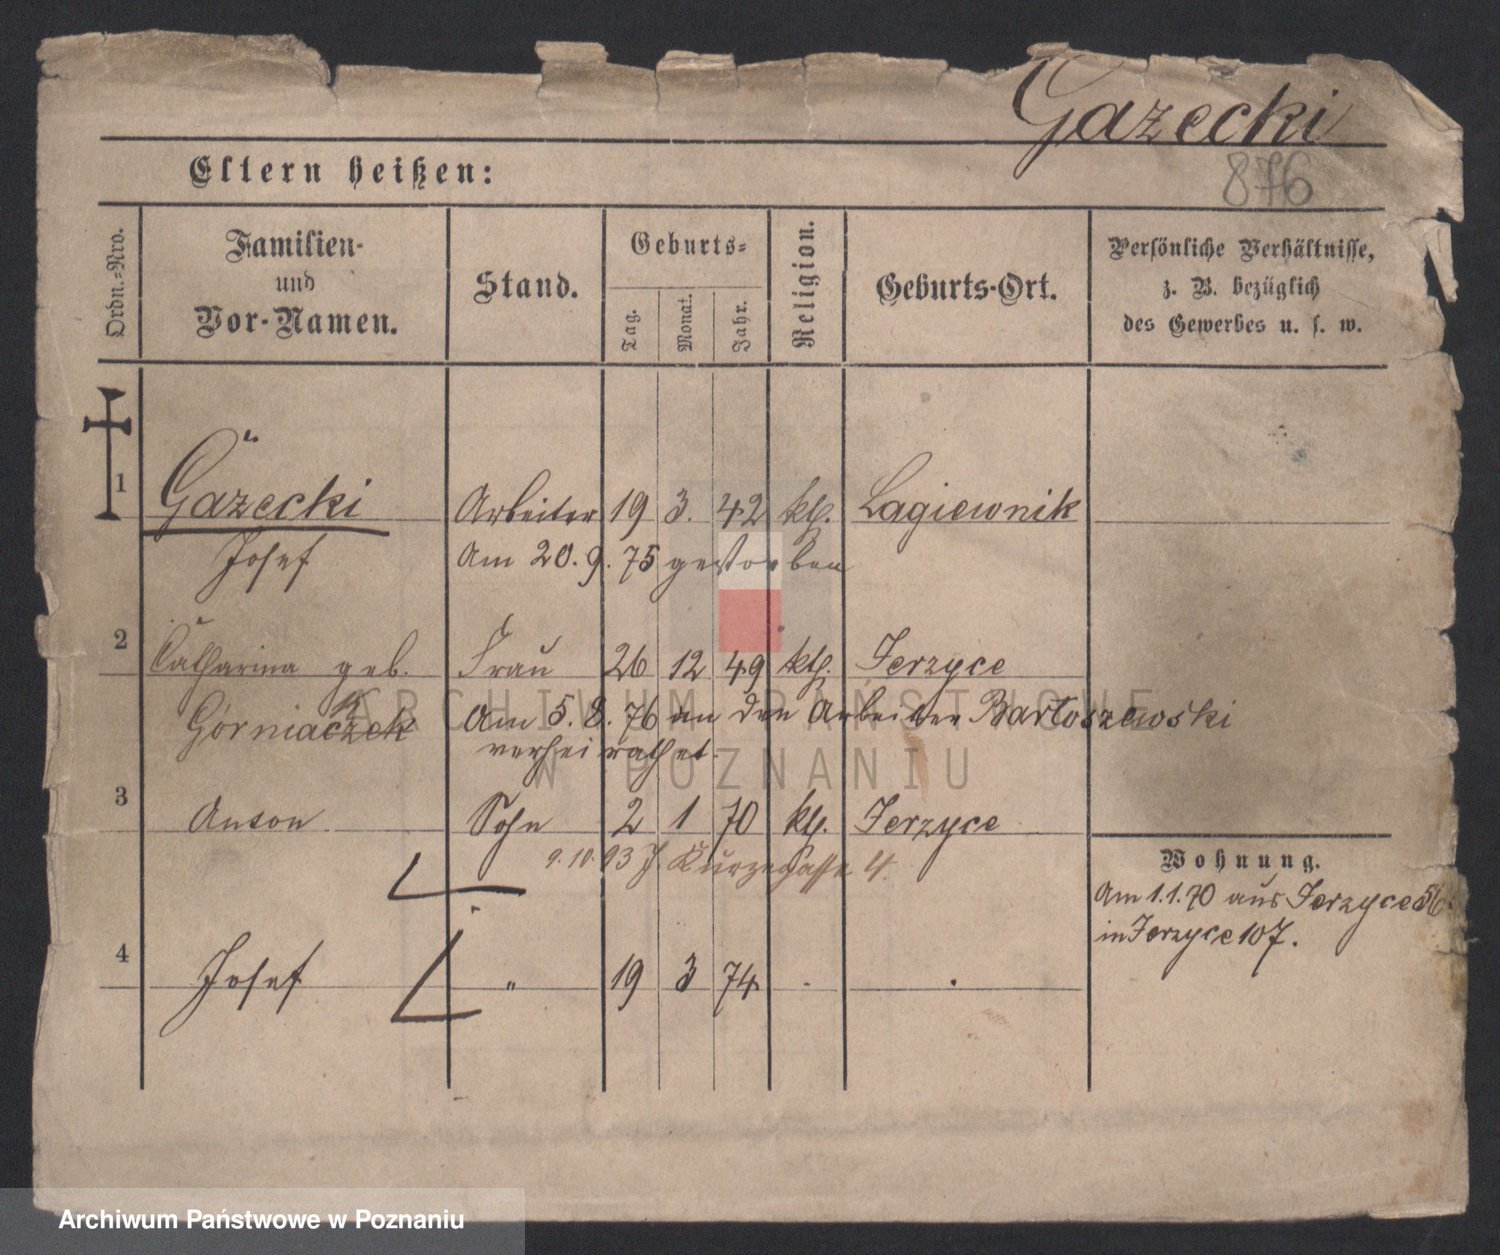 Gazecki
876
Eltern heißen:
Ordn.-Nro.
Familien-
und
Vor-Namen.
Stand.
Geburts-
Tag.
Monat.
Jahr.
Religion.
Geburts-Ort.
Persönliche Verhältnisse,
z. B. bezüglich
des Gewerbes u. s. w.
1 Gazecki Arbeiter 19 3. 42 kth. Lagiewnik
Josef Am 20. 9. 75 gestorben
2 Catharina geb. Frau 26 12 49 kth. Jerzyce
Górniaczek Am 5. 8. 76 an den Arbeiter Bartoszewski
verheirathet.
ARCHIWUM PAŃSTWOWE
W POZNANIU
3 Anton Sohn 2 1 70 kth. Jerzyce
9. 10. 93 J. Kurzegasse 4.
Wohnung.
Am 1. 1. 70 aus Jerzyce 56
in Jerzyce 107.
4 Josef " 19 3 74 . .
Archiwum Państwowe w Poznaniu